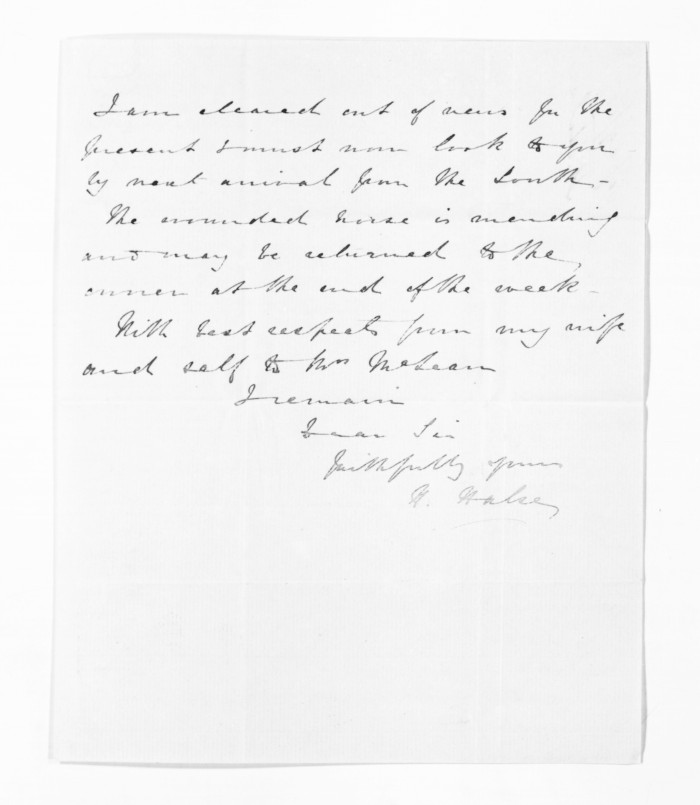 I am cleared out of news for the
present & must now look to you
by next arrival from the South -
The wounded horse is mending
and may be returned to the
owner at the end of the week -
With best respects from my wife
and self to Mrs McLean
I remain
Dear Sir
faithfully yours
H. Halse